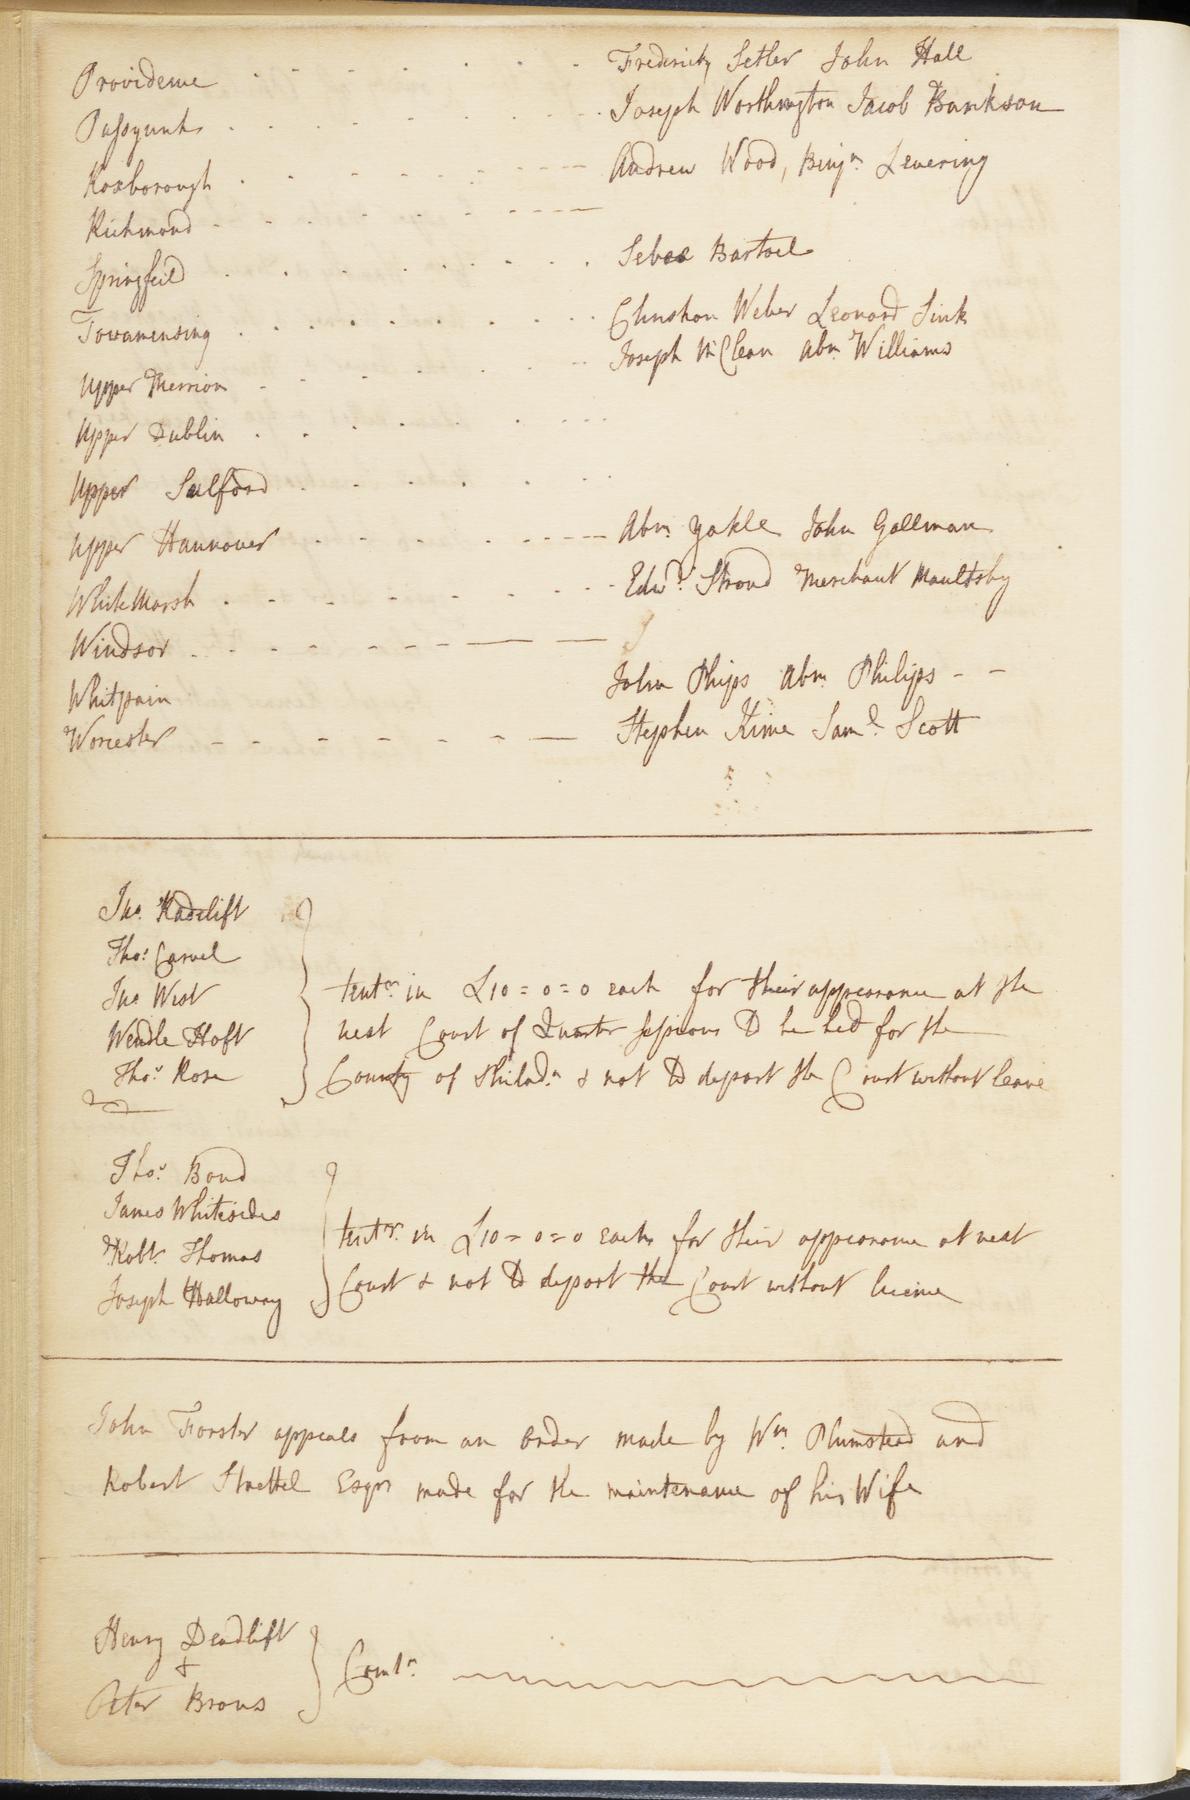 Providence - - - - - - - Frederick Setler John Hall
Passyunk - - - - - - - Joseph Worthington Jacob Bankson
Roxborough - - - - - - - Andrew Wood, Benjn. Levering
Richmond - - - - - - -
Springfeild - - - - - - - Sebas Bartoel
Towamensing - - - - - - - Christian Weber Leonard Sink
Upper Merrion - - - - - - - Joseph McClean Abm. Williams
Upper Dublin - - - - - - -
Upper Salford - - - - - - -
Upper Hannover - - - - - - - Abm. Yakle John Gallman
White Marsh - - - - - - - Edwd. Stroud Merchant Maultsby
Windsor - - - - - - -
Whitpain John Phips Abm. Philips - -
Worcester - - - - - - - Stephen Kime Saml. Scott
Jno. Radclift
Thos. Carvel
Jno West
Wendle Hoft
Thos. Rose
tentr. in £10=0=0 each for their appearance at the
next Court of Quarter Sessions to be held for the
County of Philada. & not to depart the Court without leave
Thos. Bond
James Whitesides
Robt. Thomas
Joseph Halloway
tentr. in £10=0=0 each for their appearance at next
Court & not to depart the Court without licence
John Forster appeals from an Order made by Wm. Plumsted and
Robert Strettel Esqrs made for the maintenance of his Wife
Henry Deadlift
&
Peter Brows
Contn.